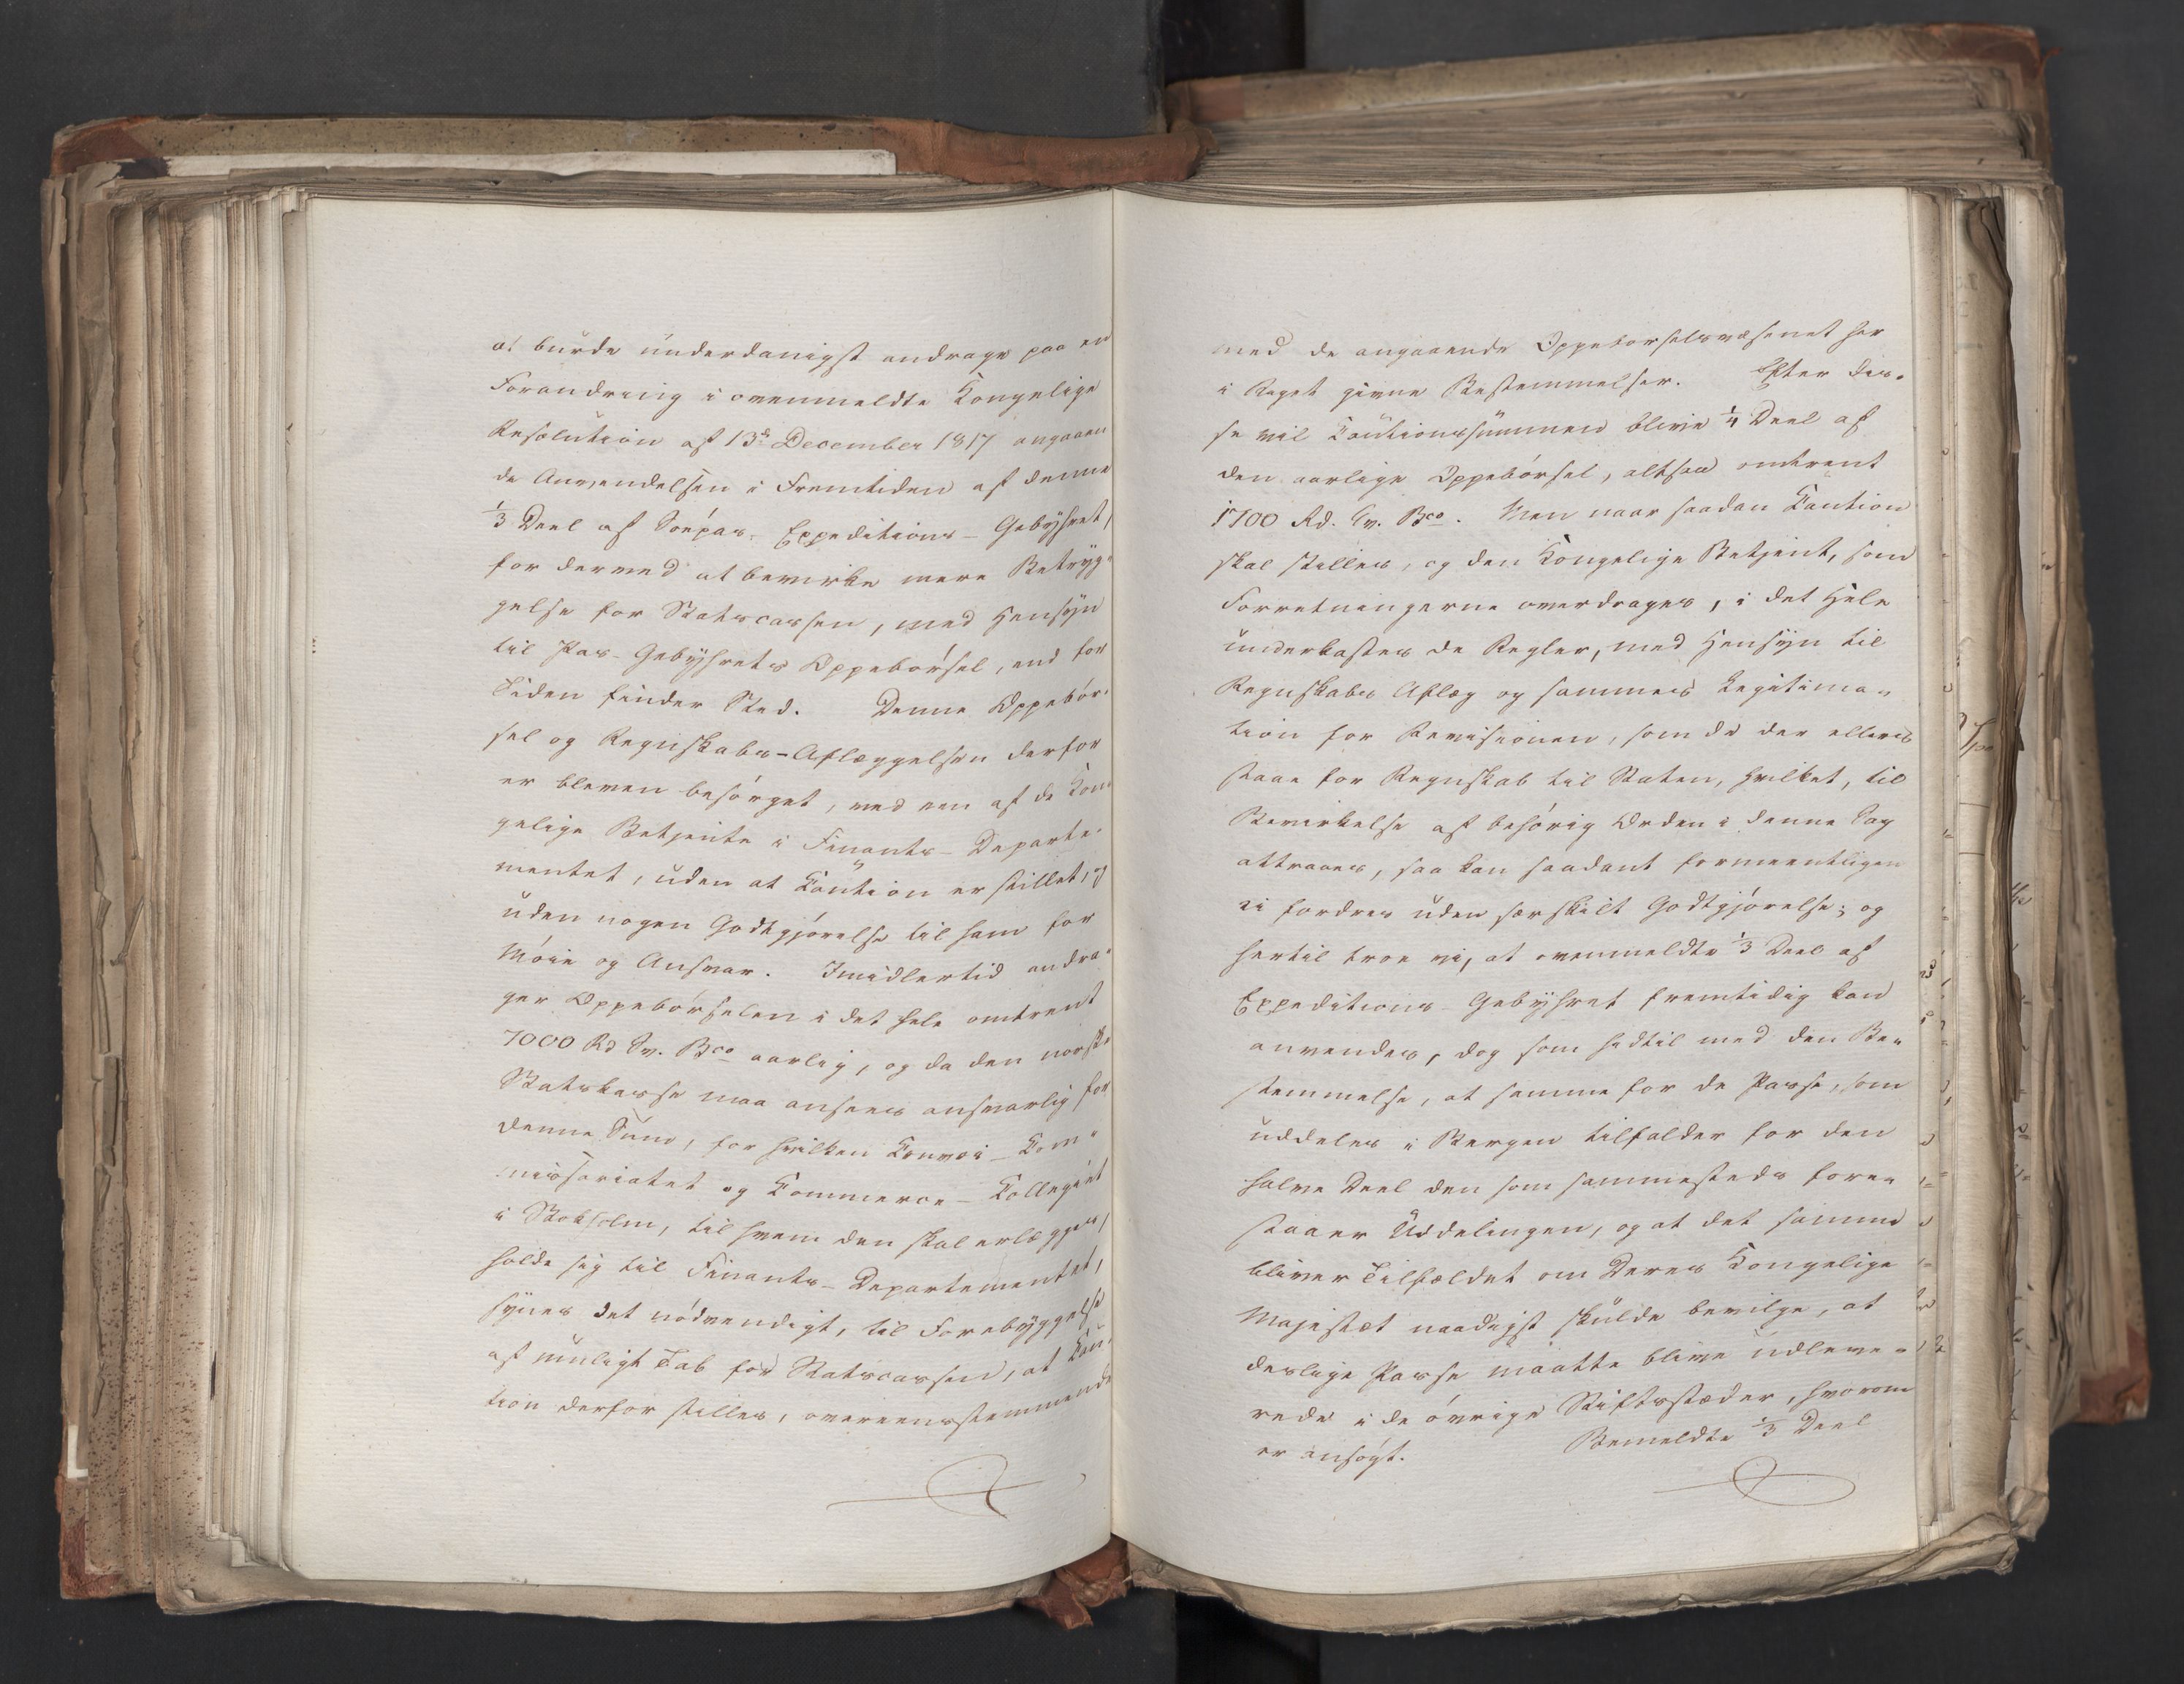 at burde underdanigst andrage paa en
Forandring i ovenmeldte Kongelige
Resolution af 13de December 1817 angaaen
de Anvendelsen i Fremtiden af denne
1/3 Deel af Søepas-Expeditions-Gebyhret,
for derved at bevirke mere Betryg„
gelse for Statscassen, med Hensyn
til Pas-Gebyhrets Oppebørsel, end for
Tiden finder Sted. Denne Oppebør„
sel og Regnskabs-Aflæggelsen derfor
er bleven besørget, ved een af de Kon„
gelige Betjente i Finants-Departe„
mentet, uden at Caution er stillet, og
uden nogen Godtgjørelse til ham for
Møie og Ansvar. Imidlertid andra„
ger Oppebørselen i det hele omtrent
7000 Rd Sv. Bco aarlig, og da den norske
Statskasse maa ansees ansvarlig for
denne Sum, for hvilken Convoi-Com„
missariatet og Commerce-Collegiet
i Stokholm, til hvem den skal erlægges,
holde sig til Finants-Departementet,
synes det nødvendigt, til Forebyggelse
af muligt Tab for Statscassen, at Cau„
tion derfor stilles, overeensstemmende
med de angaaende Oppebørselsvæsenet her
i Riget givne Bestemmelser. Efter dis„
se vil Cautionssummen blive 1/4 Deel af
den aarlige Oppebørsel, altsaa omtrent
1700 Rd. Sv. Bco. Men naar saadan Caution
skal stilles, og den Kongelige Betjent, som
Forretningerne overdrages, i det Hele
underkastes de Regler, med Hensyn til
Regnskabs Aflæg og sammes Legitima„
tion for Revisionen, som de der ellers
staae for Regnskab til Staten, hvilket, til
Bevirkelse af behørig Orden i denne Sag
attraaes, saa kan saadant formeentligen
ei fordres uden særskilt Godtgjørelse; og
hertil troe vi, at ovenmeldte 1/3 Deel af
Expeditions-Gebyhret fremtidig kan
anvendes, dog som hidtil med den Be„
stemmelse, at samme for de Passe, som
uddeles i Bergen tilfalder for den
halve Deel den som sammesteds fore„
staaer Uddelingen, og at det samme
bliver Tilfældet om Deres Kongelige
Majestæt naadigst skulde bevilge, at
deslige Passe maatte blive udleve„
rede i de øvrige Stiftsstæder, hvorom
er ansøgt. Bemeldte 1/3 Deel